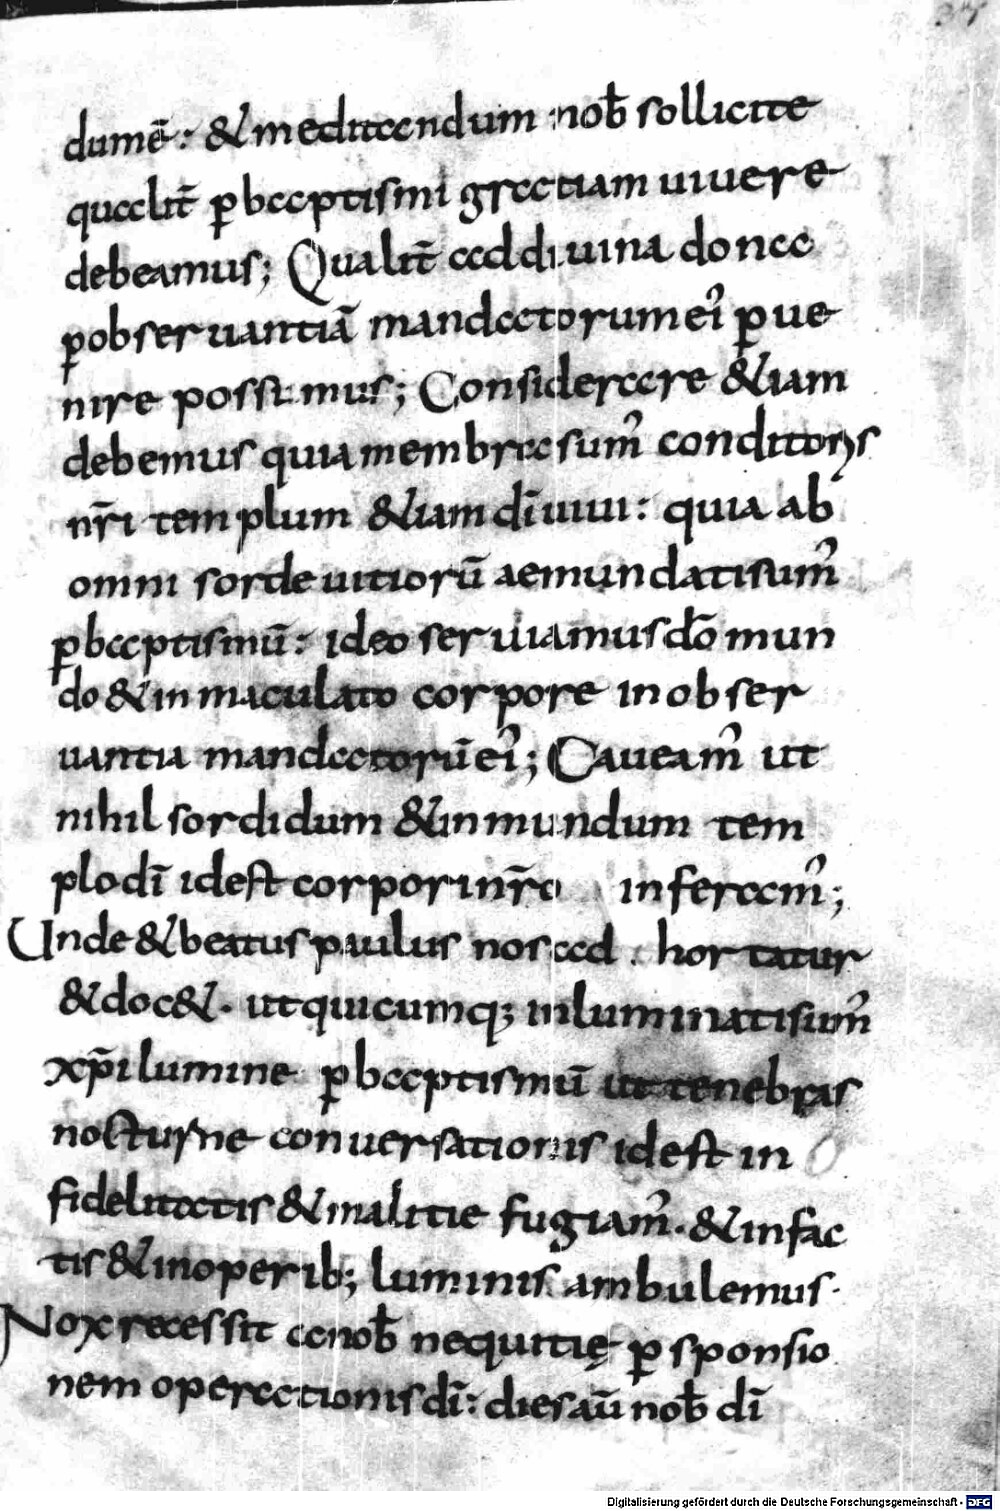 37
dumē: & meditandum nob̄ sollicite
qualit̄ p̲ baptismi gratiam uiuere
debeamus; Qualit̄ ad diuina dona
p̲ obseruantiā mandatorum ei᾽ p̲ue
nire possimus; Considerare &iam
debemus quia membra sum᾽ conditoris
nr̄i templum &iam dī uiui: quia ab
omni sorde uitiorū aemundati sum᾽
p̲ baptismū: ideo seruiamus dō mun
do & inmaculato corpore in obser
uantia mandatorū ei᾽; Caueam᾽ ut
nihil sordidum & inmundum tem
plo dī id est corpori nr̄o inferam᾽;
Unde & beatus paulus nos ad hortatur
& doc&. ut quicumq; inluminati sum᾽
xp̄i lumine p̲ baptismū ut tenebras
nocturne conuersationis id est in
fidelitatis & malitie fugiam᾽. & in fac
tis & in operib; luminis ambulemus.
Nox recessit a nob̄ nequitię p̲ sponsio
nem operationis dī: dies aū nob̄ dī
Digitalisierung gefördert durch die Deutsche Forschungsgemeinschaft - DFG